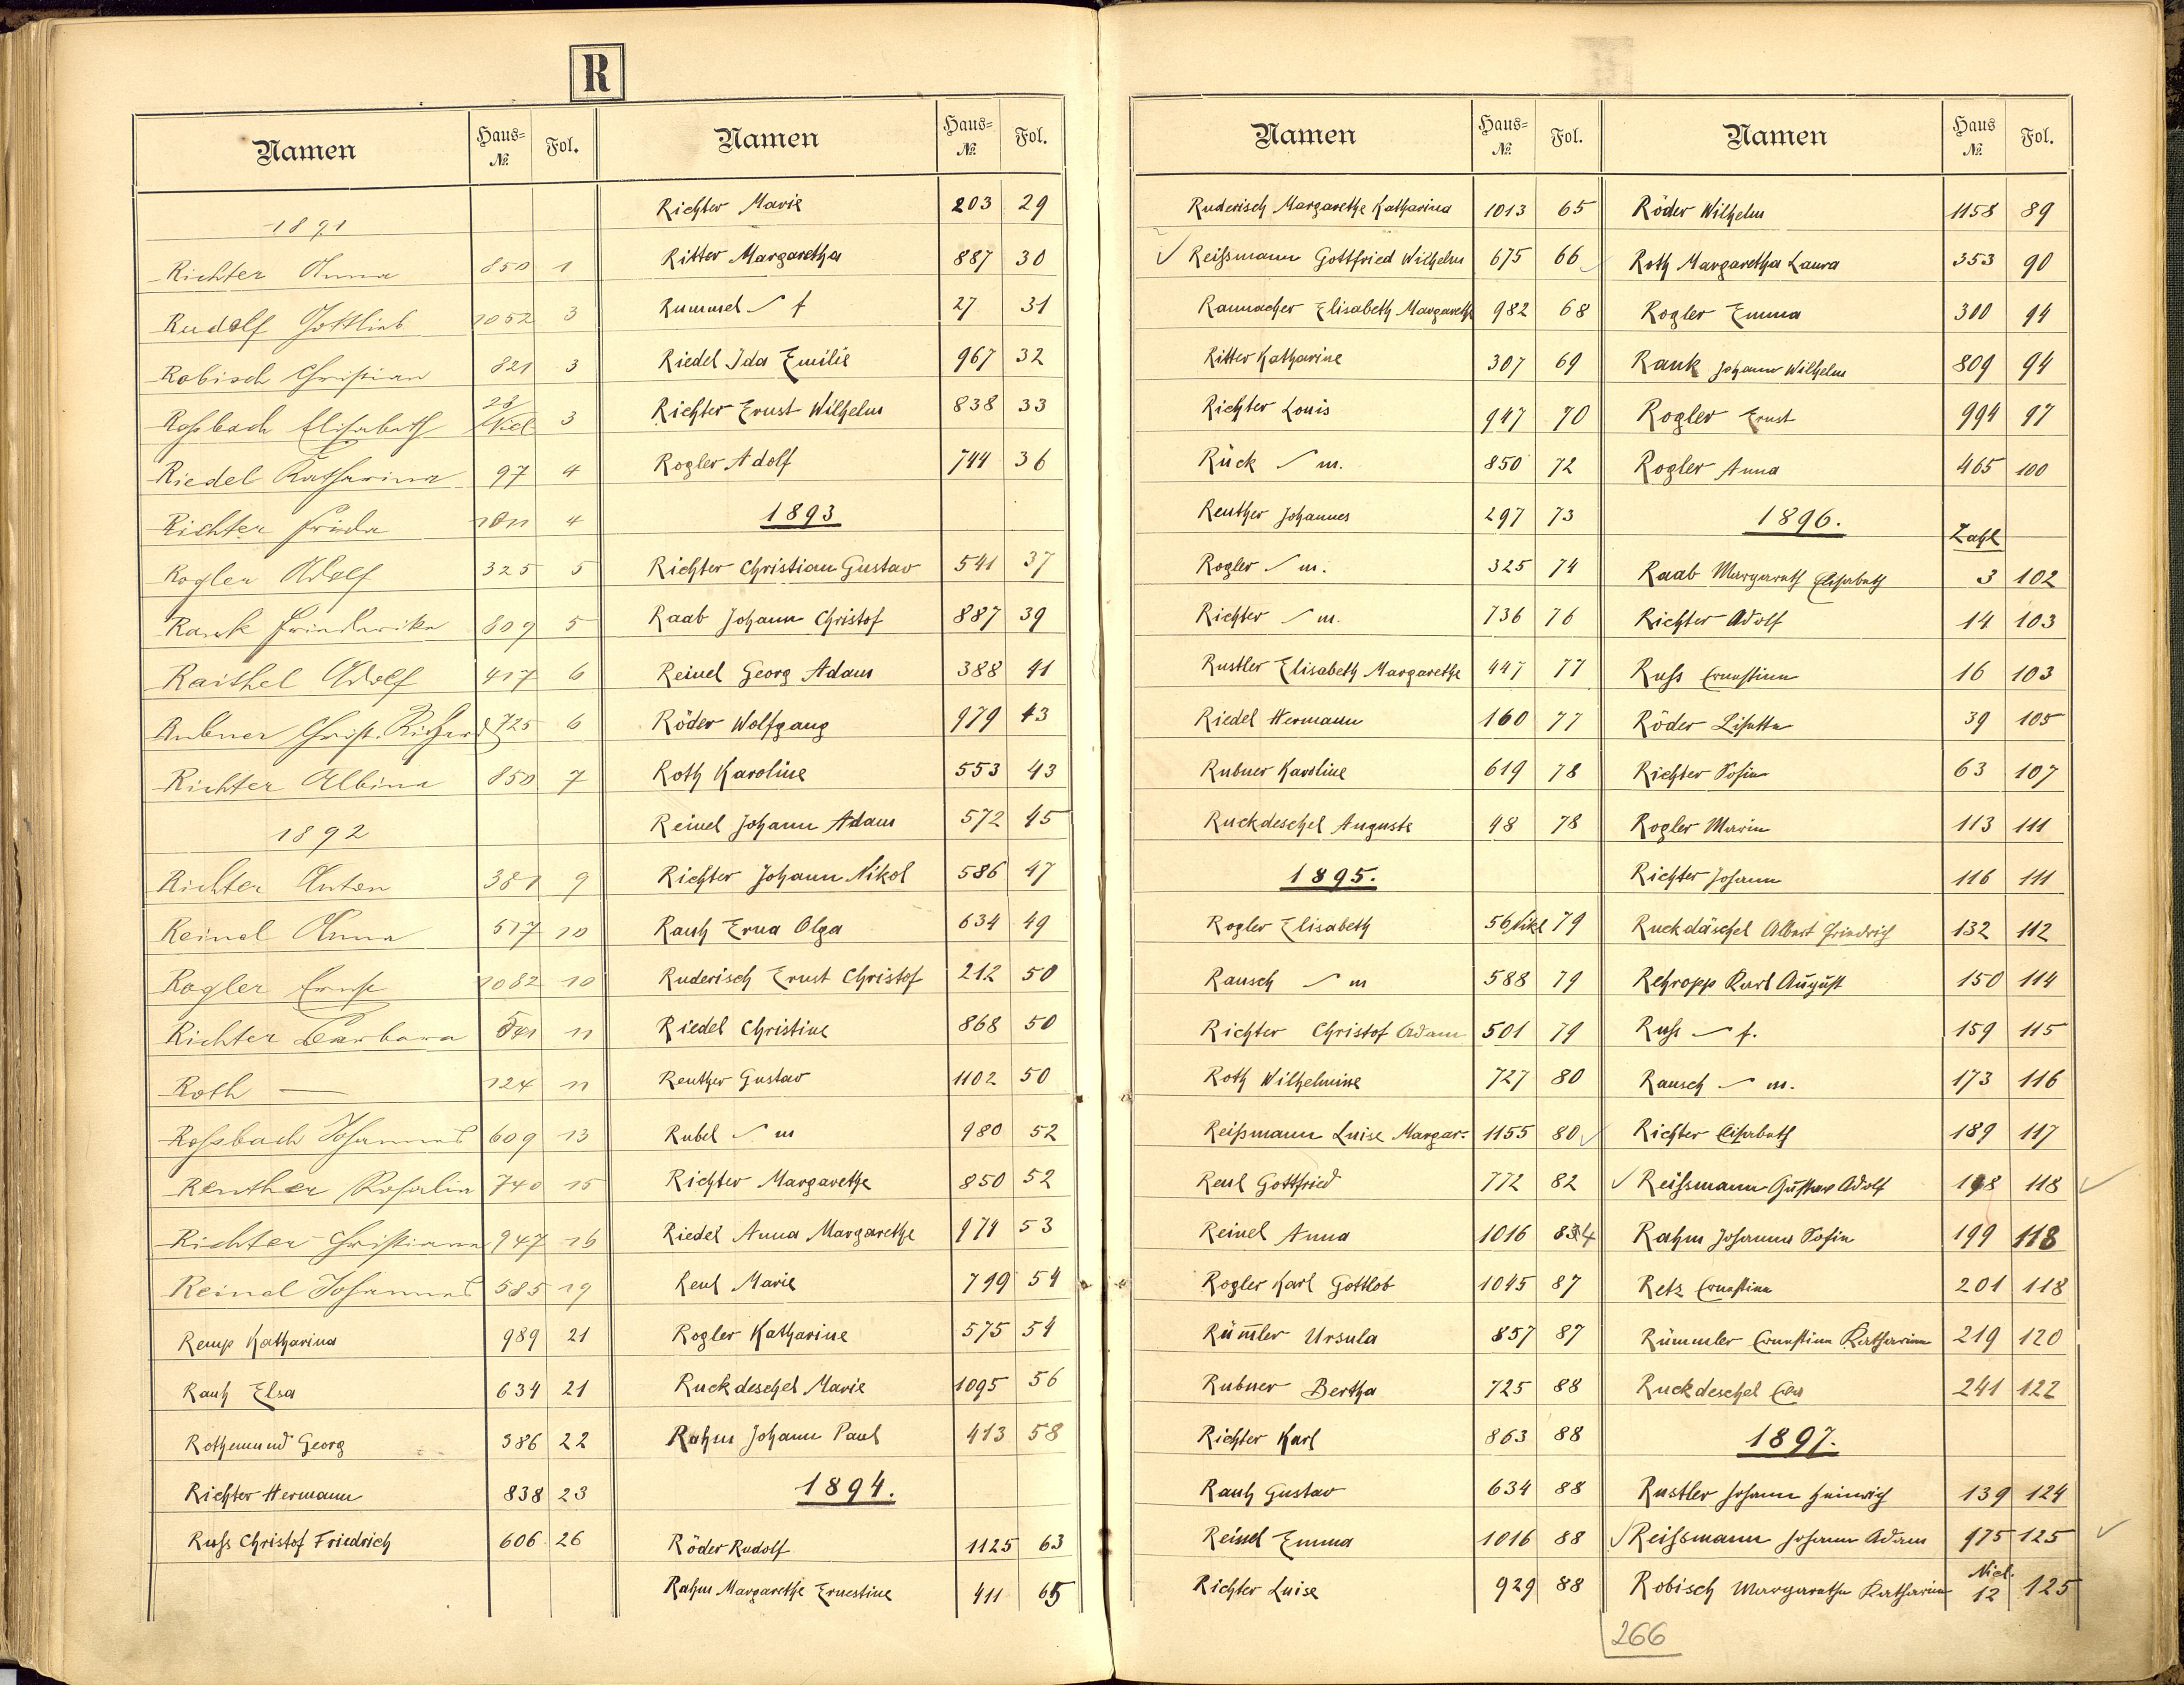 R
Namen Haus-№ Fol.
1891
Richter Anna 850 1
Rudolf Gottlieb 1052 3
Robisch Christian 821 3
Roßbach Elisabeth 28/Nicl 3
Riedel Katharina 97 4
Richter Frida 4
Rogler Adolf 325 5
Rank Friederike 809 5
Raithel Adolf 417 6
Rubner Christ. Richard 725 6
Richter Albina 850 7
1892
Richter Anton 381 9
Reinel Anna 517 10
Rogler Ernst 1082 10
Richter Barbara 11
Roth — 124 11
Roßbach Johannes 609 13
Reuther Rosalia 740 15
Richter Christiana 947 16
Reinel Johannes 585 19
Remp Katharina 989 21
Rauh Elsa 634 21
Rothemund Georg 386 22
Richter Hermann 838 23
Ruß Christof Friedrich 606 26
Namen Haus-№ Fol.
Richter Marie 203 29
Ritter Margaretha 887 30
Rummel / f 27 31
Riedel Ida Emilie 967 32
Richter Ernst Wilhelm 838 33
Rogler Adolf 744 36
1893
Richter Christian Gustav 541 37
Raab Johann Christof 887 39
Reinel Georg Adam 388 41
Röder Wolfgang 979 43
Roth Karoline 553 43
Reinel Johann Adam 572 45
Richter Johann Nikol 586 47
Rauh Erna Olga 634 49
Ruderisch Ernst Christof 212 50
Riedel Christine 868 50
Reuther Gustav 1102 50
Rubel / m 980 52
Richter Margarethe 850 52
Riedel Anna Margarethe 974 53
Reul Marie 719 54
Rogler Katharine 575 54
Ruckdeschel Marie 1095 56
Rahm Johann Paul 413 58
1894.
Röder Rudolf 1125 63
Rahm Margarethe Ernestine 411 65
Namen Haus-№ Fol.
Ruderisch Margarethe Katharina 1013 65
✓ Reißmann Gottfried Wilhelm 675 66
Rannacher Elisabeth Margareth 982 68
Ritter Katharine 307 69
Richter Louis 947 70
Rück / m. 850 72
Reuther Johannes 297 73
Rogler / m. 325 74
Richter / m. 736 76
Rustler Elisabeth Margarethe 447 77
Riedel Hermann 160 77
Rubner Karoline 619 78
Ruckdeschel Auguste 48 78
1895.
Rogler Elisabeth 56 Nikl 79
Rausch / m 588 79
Richter Christof Adam 501 79
Roth Wilhelmine 727 80
Reißmann Luise Margar. 1155 80 ✓
Reul Gottfried 772 82
Reinel Anna 1016 84
Rogler Karl Gottlob 1045 87
Rüm̅ler Ursula 857 87
Rubner Bertha 725 88
Richter Karl 863 88
Rauh Gustav 634 88
Reinel Emma 1016 88
Richter Luise 929 88
Namen Haus № Fol.
Röder Wilhelm 1158 89
Roth Margaretha Laura 353 90
Rogler Emma 300 94
Rank Johann Wilhelm 809 94
Rogler Ernst 994 97
Rogler Anna 465 100
1896. Zahl
Raab Margareth Elisabeth 3 102
Richter Adolf 14 103
Ruß Ernestine 16 103
Röder Lisette 39 105
Richter Sofie 63 107
Rogler Marie 113 111
Richter Johann 116 111
Ruckdäschel Albert Friedrich 132 112
Rehropp Karl August 150 114
Ruß / f. 159 115
Rausch / m. 173 116
Richter Elisabeth 189 117
✓ Reißmann Gustav Adolf 198 118 ✓
Rahm Johanna Sofie 199 118
Retz Ernestine 201 118
Rümmler Ernestine Katharine 219 120
Ruckdeschel 241 122
1897.
Rustler Johann Heinrich 139 124
✓ Reißmann Johann Adam 975 125 ✓
Robisch Margaretha Katharine Nicl. 12 125
266